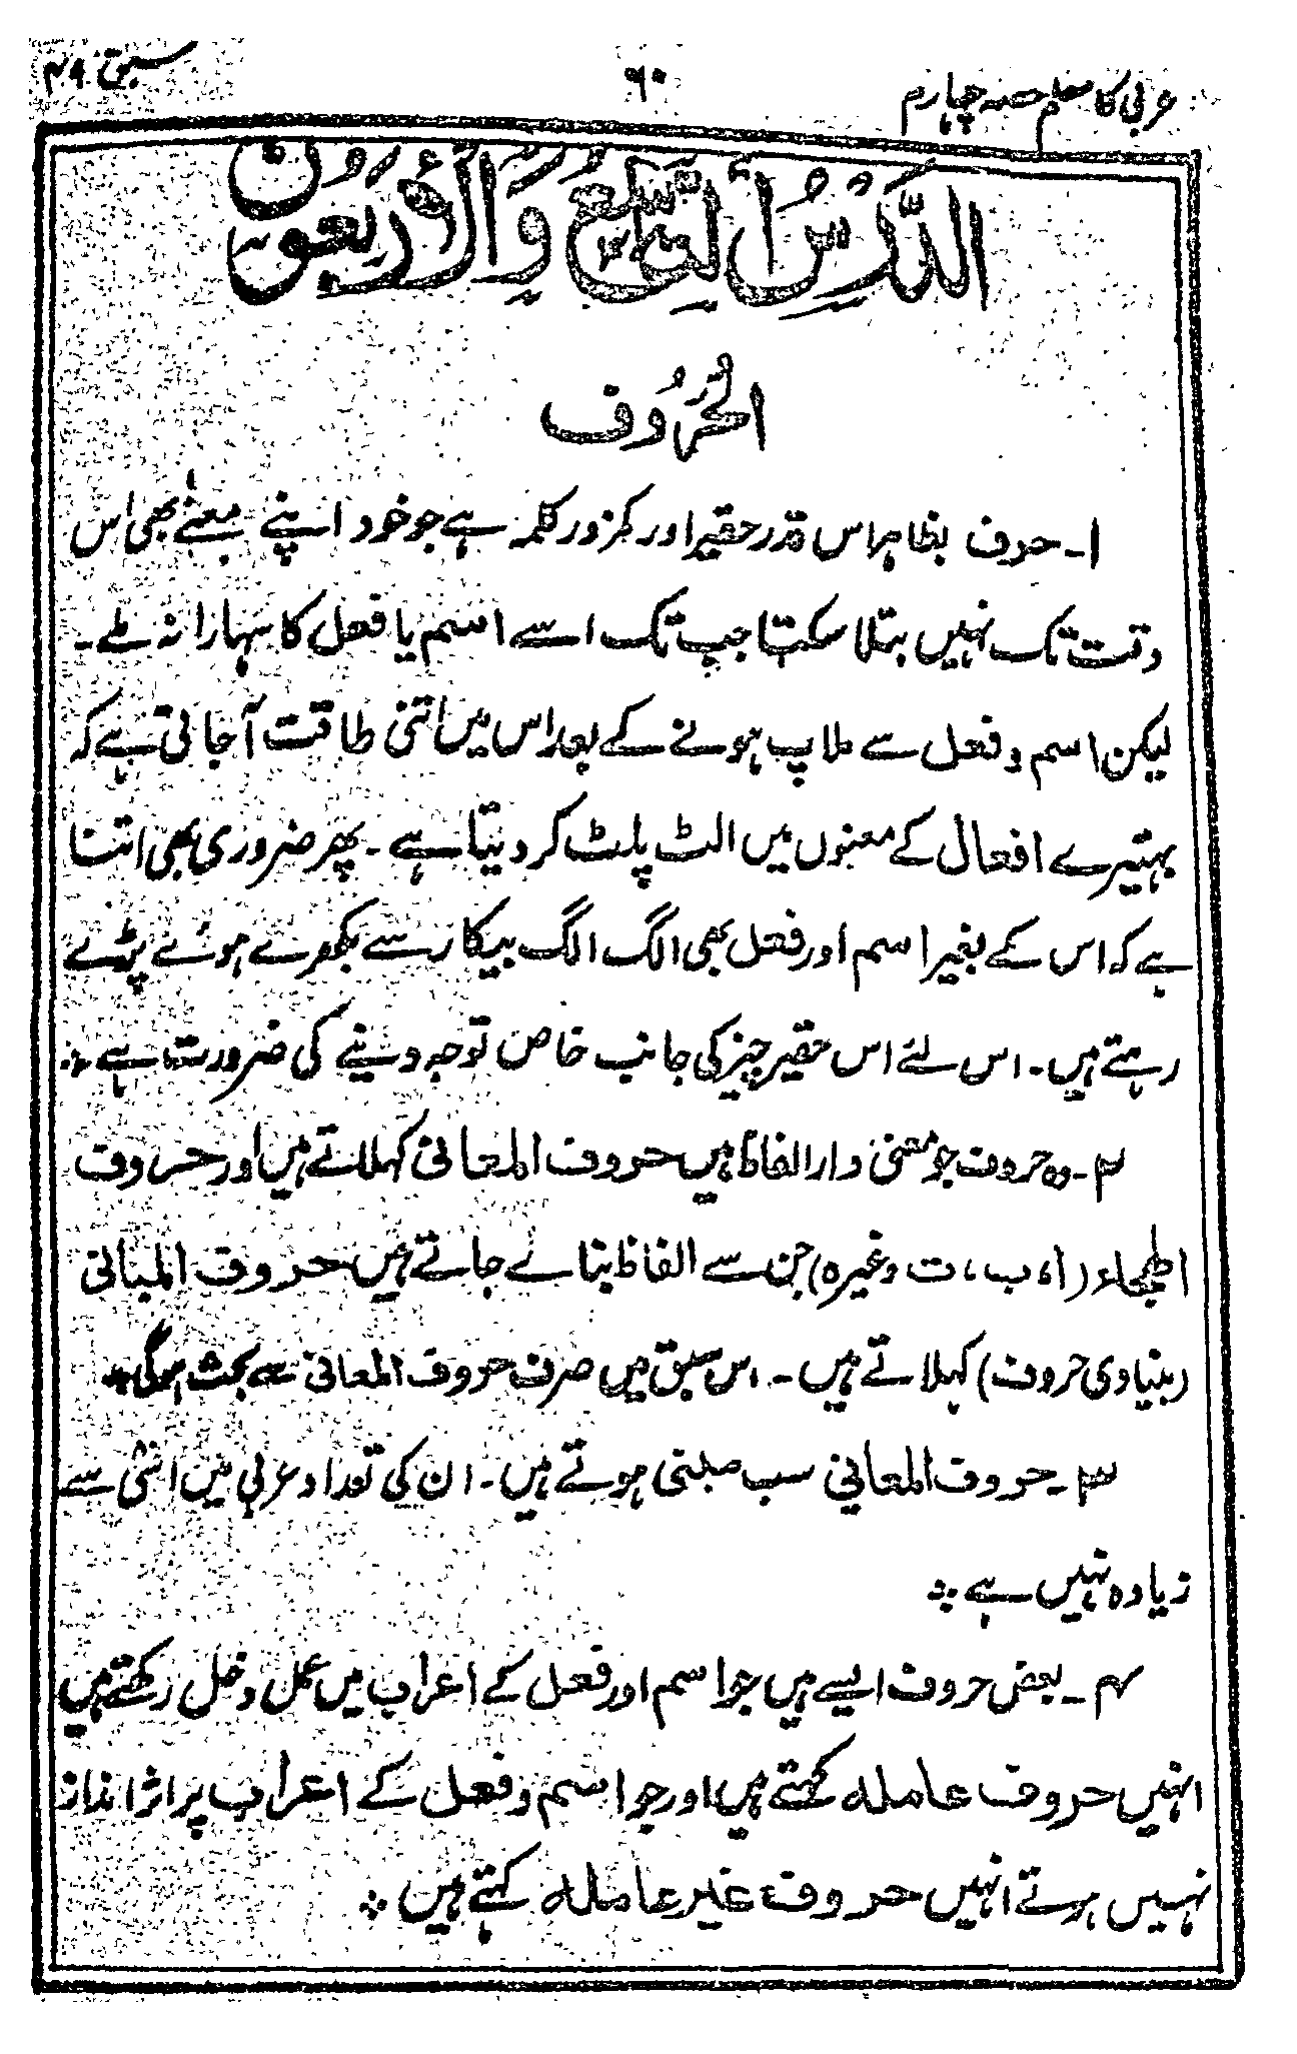 عربی کا معلم حصہ چہارم
۶۰
سبق ۴۹
الدَّرْسُ التَّاسِعُ وَالْأَرْبَعُونَ
الحُرُوف
۱۔ حرف بظاہر اس قدر حقیر اور کمزور کلمہ ہے جو خود اپنے معنےٰ بھی اس
وقت تک نہیں بتلا سکتا جب تک اسے اسم یا فعل کا سہارا نہ ملے۔
لیکن اسم و فعل سے ملاپ ہونے کے بعد اس میں اتنی طاقت آجاتی ہے کہ
بہتیرے افعال کے معنوں میں الٹ پلٹ کر دیتا ہے۔ پھر ضروری بھی اتنا
ہے کہ اس کے بغیر اسم اور فعل بھی الگ الگ بیکار سے بکھرے ہوئے پڑے
رہتے ہیں۔ اس لئے اس حقیر چیز کی جانب خاص توجہ دینے کی ضرورت ہے ⁘
۲۔ وہ حروف جو معنی دار الفاظ ہیں حروف المعانی کہلاتے ہیں اور حروف
الھجاء (ا، ب، ت وغیرہ) جن سے الفاظ بنائے جاتے ہیں حروف المبانی
(بنیادی حروف) کہلاتے ہیں۔ اس سبق میں صرف حروف المعانی سے بحث ہوگی ⁘
۳۔ حروف المعانی سب مبنی ہوتے ہیں۔ ان کی تعداد عربی میں اسّی سے
زیادہ نہیں ہے ⁘
۴۔ بعض حروف ایسے ہیں جو اسم اور فعل کے اعراب میں عمل دخل رکھتے ہیں
انہیں حروف عاملہ کہتے ہیں اور جو اسم و فعل کے اعراب پر اثر انداز
نہیں ہوتے انہیں حروف غیر عاملہ کہتے ہیں ⁘